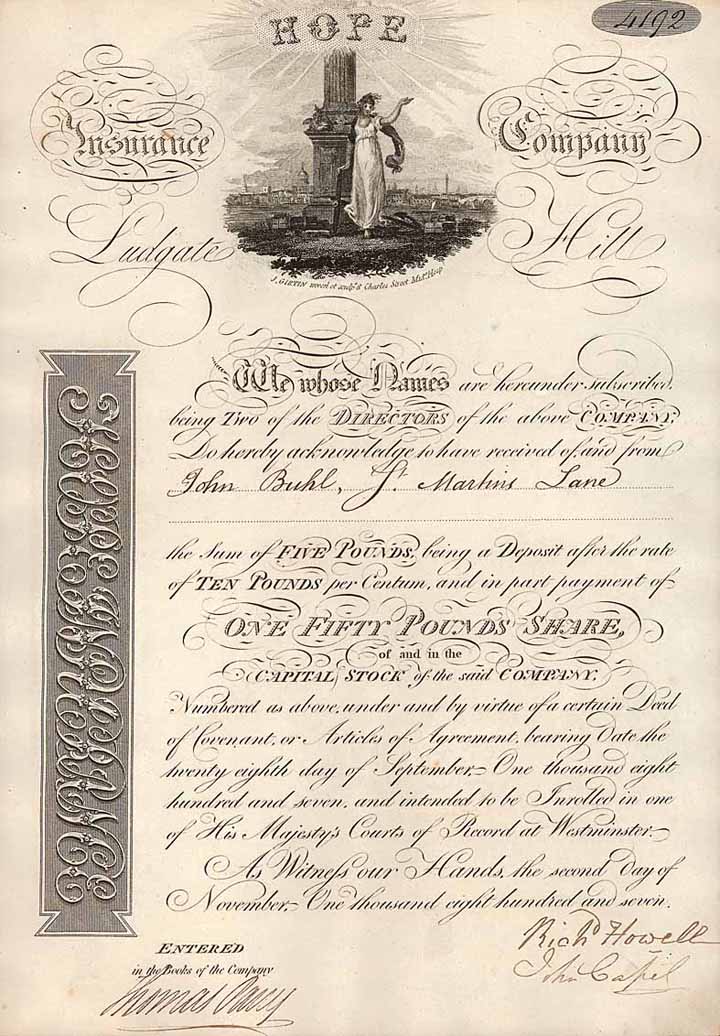 HOPE
4192
Insurance Company
Ludgate Hill
J. GIRTIN invent et sculpt. Charles Street Midx. Hosp
We whose Names are hereunder subscribed,
being Two of the DIRECTORS of the above COMPANY,
Do hereby acknowledge to have received of, and from
John Buhl, St. Martins Lane
the Sum of FIVE POUNDS, being a Deposit after the rate
of TEN POUNDS per Centum, and in part payment of
ONE FIFTY POUNDS SHARE,
of and in the
CAPITAL STOCK of the said COMPANY.
Numbered as above, under and by virtue of a certain Deed
of Covenant, or Articles of Agreement, bearing Date the
twenty eighth day of September, One thousand eight
hundred and seven, and intended to be Inrolled in one
of His Majesty's Courts of Record at Westminster.
As Witness our Hands, the second day of
November, One thousand eight hundred and seven.
ENTERED
in the Books of the Company
Thomas
Richd. Howell
John Capel